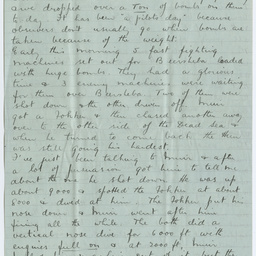 & we dropped over a Ton of bombs on them
to day. It has been "a pilots day" because
observers don't usually go when bombs are
taken because of the weight.
Early this morning 5 fast fighting
machines set out for Beersheba loaded
with huge bombs. They had a glorious
time & 3 enemy machines were waiting
for them over Beersheba. Two of them were
shot down & the other driven off. Muir
got a Fokker & then chased another away
over to the other side of the Dead Sea &
when he turned to come back the Hun
was still going his hardest.
I've just been talking to Muir & after
a lot of persuasion got him to tell me
about the one he shot down. He was up
about 9000 & spotted the Fokker at about
6000 & dived at him. The Fokker put his
nose down & Muir went after him
firing all the while. They both did a
vertical nose dive for 6000 ft with
engines full on & at 2000 ft, Muir